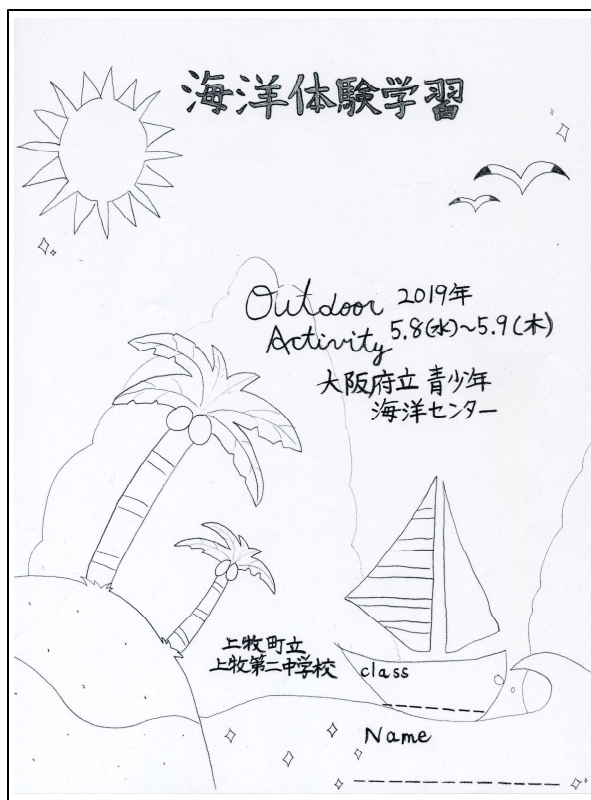 海洋体験学習
Outdoor
Activity
2019年
5.8(水)~5.9(木)
大阪府立 青少年
海洋センター
上牧町立
上牧第二中学校
class
Name